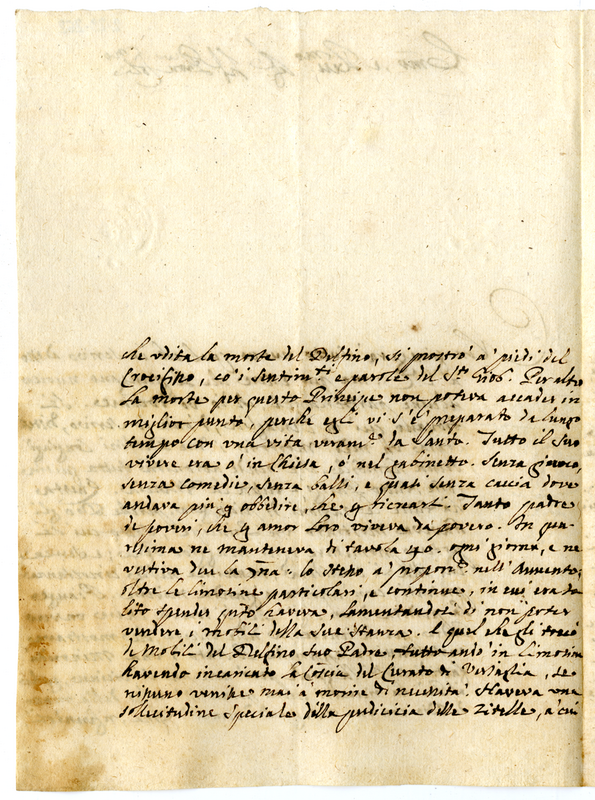 che udita la morte del Delfino, si prostrò a' piedi del
Crocifisso, cò i sentim.ti e parole del S.to Giob. Per altro
la morte per questo Principe non poteva accader in
miglior punto, perche egli vi s'è preparato da lungo
tempo con una vita veram.te da Santo. Tutto il suo
vivere era ò in Chiesa, ò nel gabinetto. Senza giuoco,
senza comedie, senza balli, e quasi senza caccia dove
andava più p obbedire, che p ricrearsi. Tanto padre
de poveri, che p amor loro viveva da povero. In qua-
resima ne manteneva di tavola 40. ogni giorno, e ne
vestiva due la : lo stesso a' propor.ne nell'Avvento,
oltre le limosine particolari, e continue, in cui era
lito spender q.nto haveva, lamentandosi di non poter
vendere i mobili della sua stanza. E quel che gli toccò
de Mobili del Delfino suo Padre tutto andò in limosine
havendo incaricato la Coscia del Curato di Versaglia, se
nissuno venisse mai à morire di necessità. Haveva una
sollecitudine speciale della pudicicia delle Zitelle, a' cui